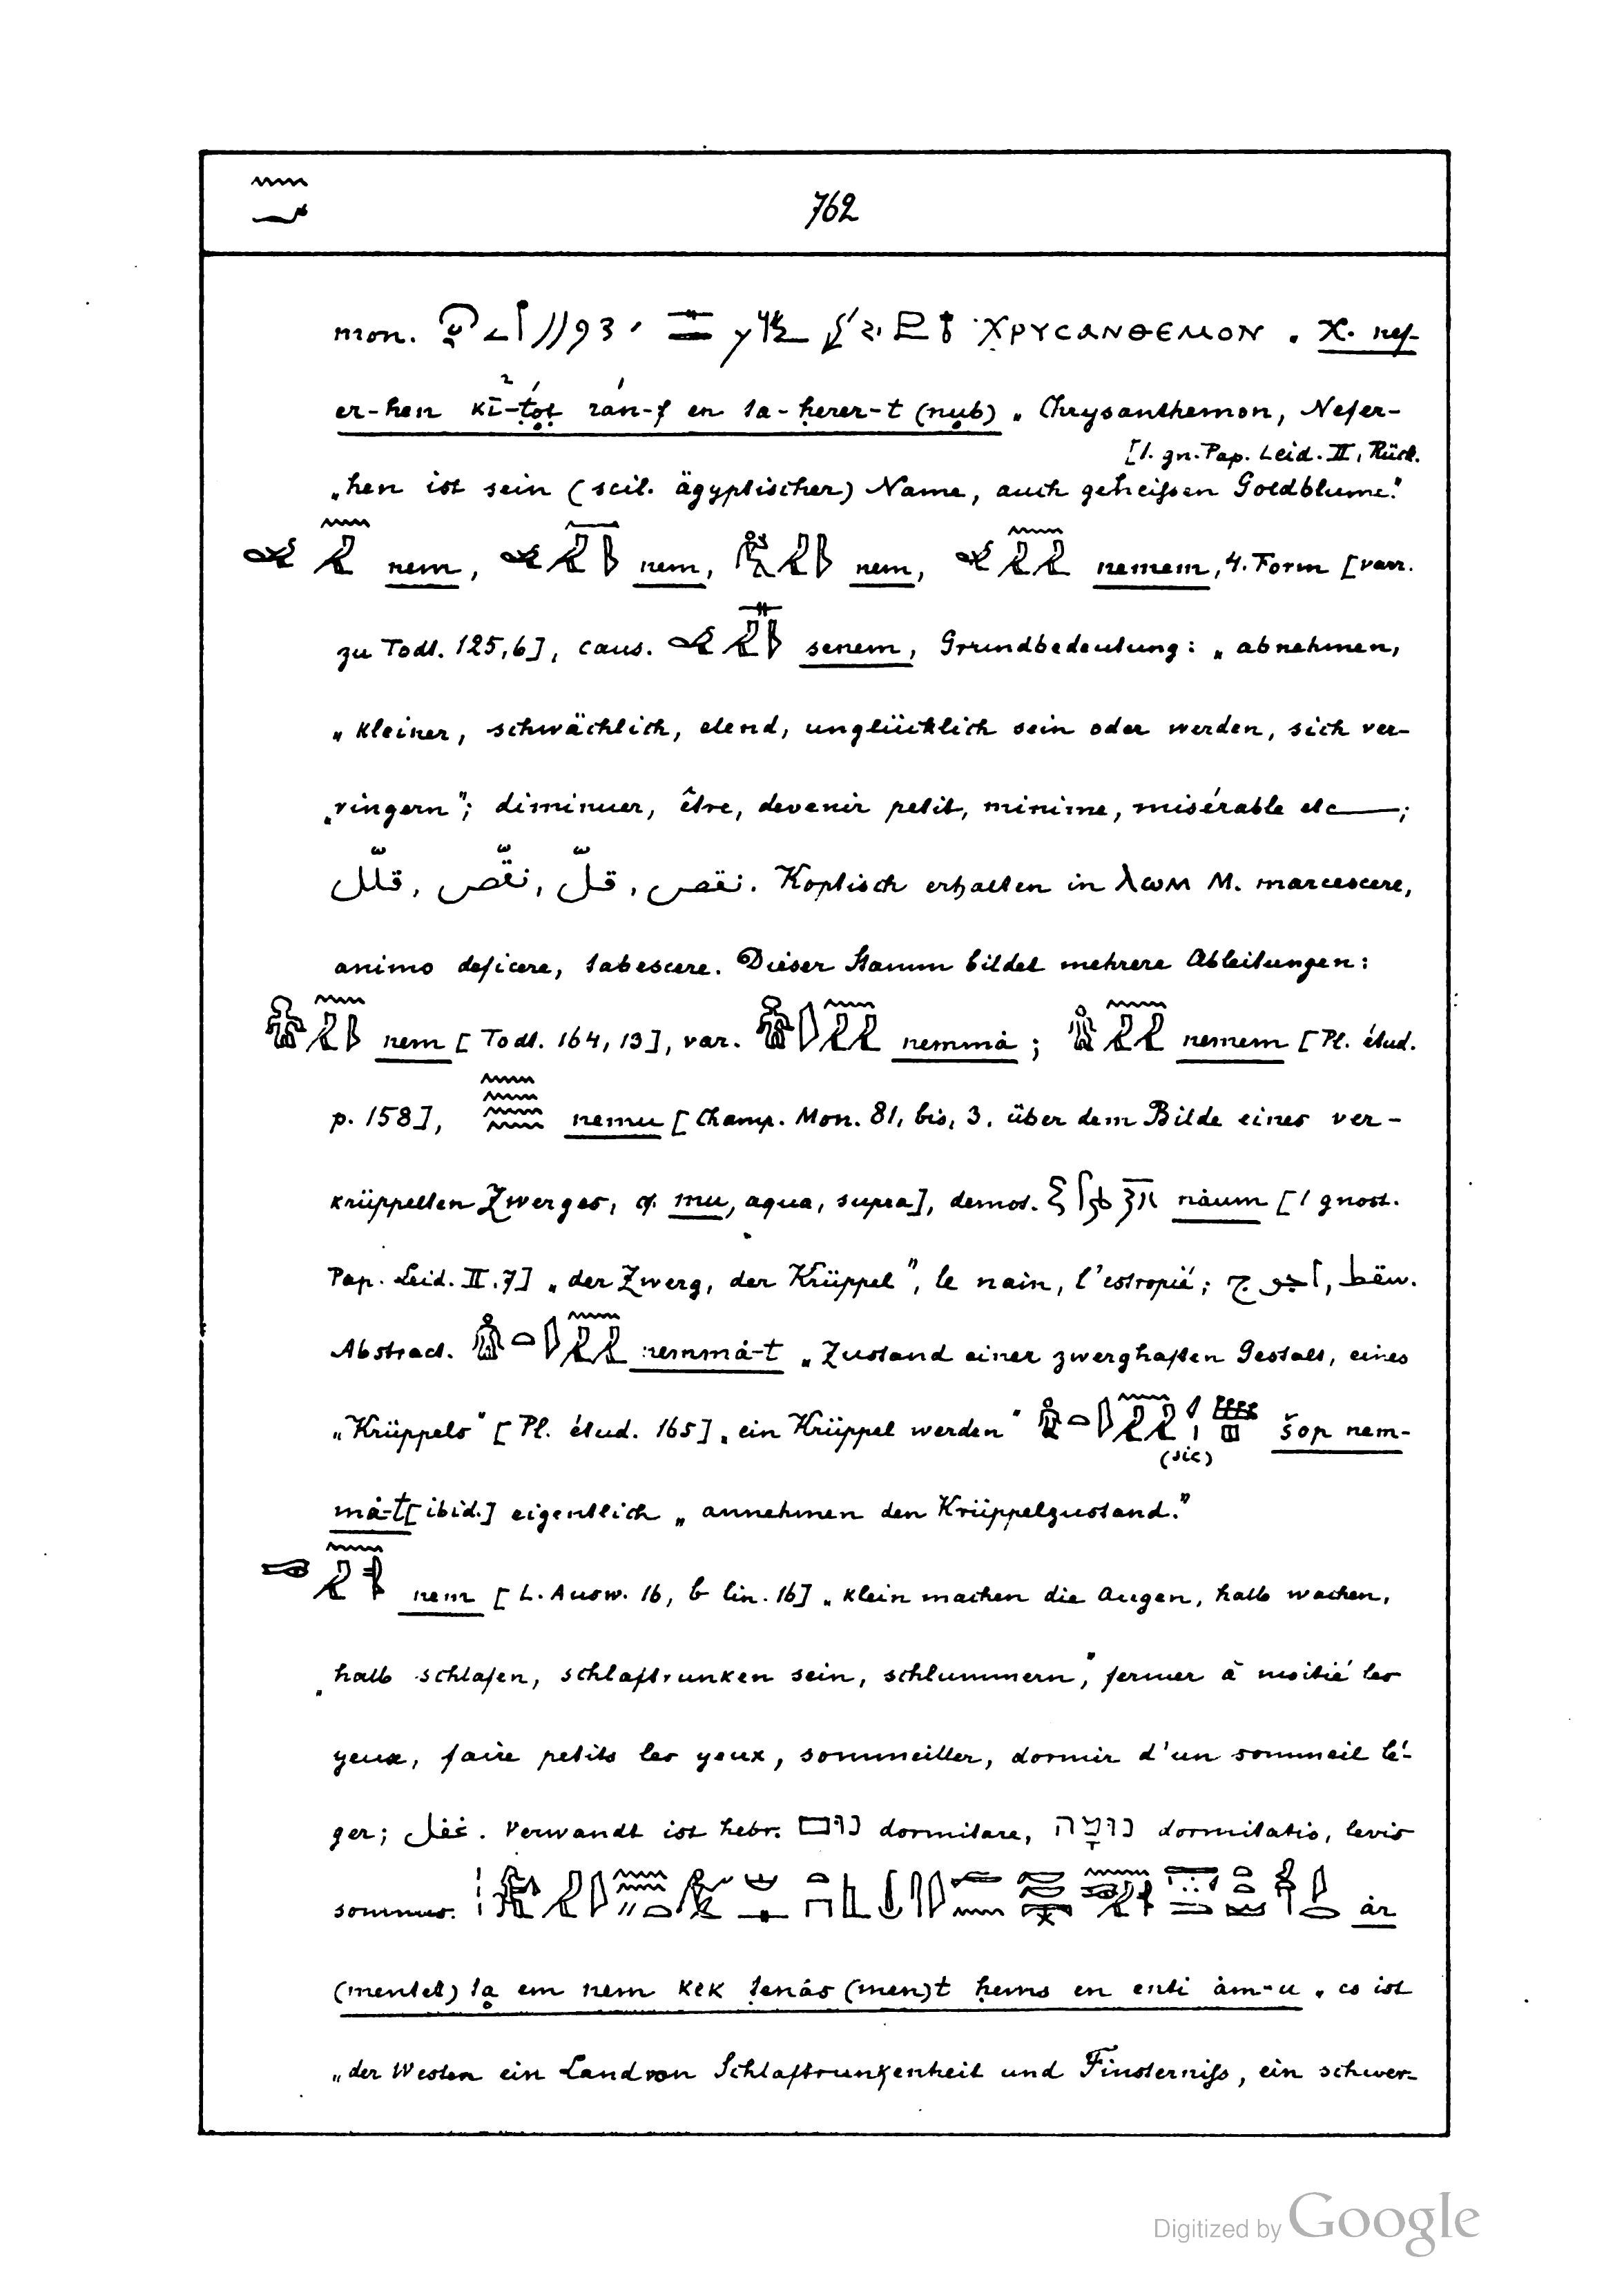 762
mon. ΧΡΥCΑΝΘΕΜΟΝ. X. nef-
er-hen kī-ṭoṭ rán-f en ta-ḥerer-t (nub) „Chrysanthemon, Nefer-
[1. gn. Pap. Leid. II, Rück.
„hen ist sein (scil. ägyptischer) Name, auch geheißen Goldblume."
nem, nem, nem, nemem, 4. Form [varr.
zu Todt. 125,6], caus. senem, Grundbedeutung: „abnehmen,
„kleiner, schwächlich, elend, unglücklich sein oder werden, sich ver-
„ringern"; diminuer, être, devenir petit, minime, misérable etc—;
نقص, قلّ, نقّص, قلّل. Koptisch erhalten in λωμ M. marcescere,
animo deficere, tabescere. Dieser Stamm bildet mehrere Ableitungen:
nem [Todt. 164, 13], var. nemmȧ; nemem [Pl. étud.
p. 158], nemu [Champ. Mon. 81, bis, 3. über dem Bilde eines ver-
krüppelten Zwerges, cf. mu, aqua, supra], demot. nȧum [1 gnost.
Pap. Leid. II. 7] „der Zwerg, der Krüppel", le nain, l'estropié;
Abstract. nemmȧ-t „Zustand einer zwerghaften Gestalt, eines
„Krüppels" [Pl. étud. 165] „ein Krüppel werden" šop nem-
(sic)
mȧ-t [ibid.] eigentlich „annehmen den Krüppelzustand."
nem [L. Ausw. 16, b lin. 16] „klein machen die Augen, halb wachen,
„halb schlafen, schlaftrunken sein, schlummern", fermer à moitié les
yeux, faire petits les yeux, sommeiller, dormir d'un sommeil lé-
ger; غفل. Verwandt ist hebr. נום dormitare, נוּמָה dormitatio, levis
somnus. ȧr
(mentet) ta em nem kek ṭenȧs (men)t ḥems en enti ȧm-u „es ist
„der Westen ein Land von Schlaftrunkenheit und Finsterniß, ein schwer-
Digitized by Google